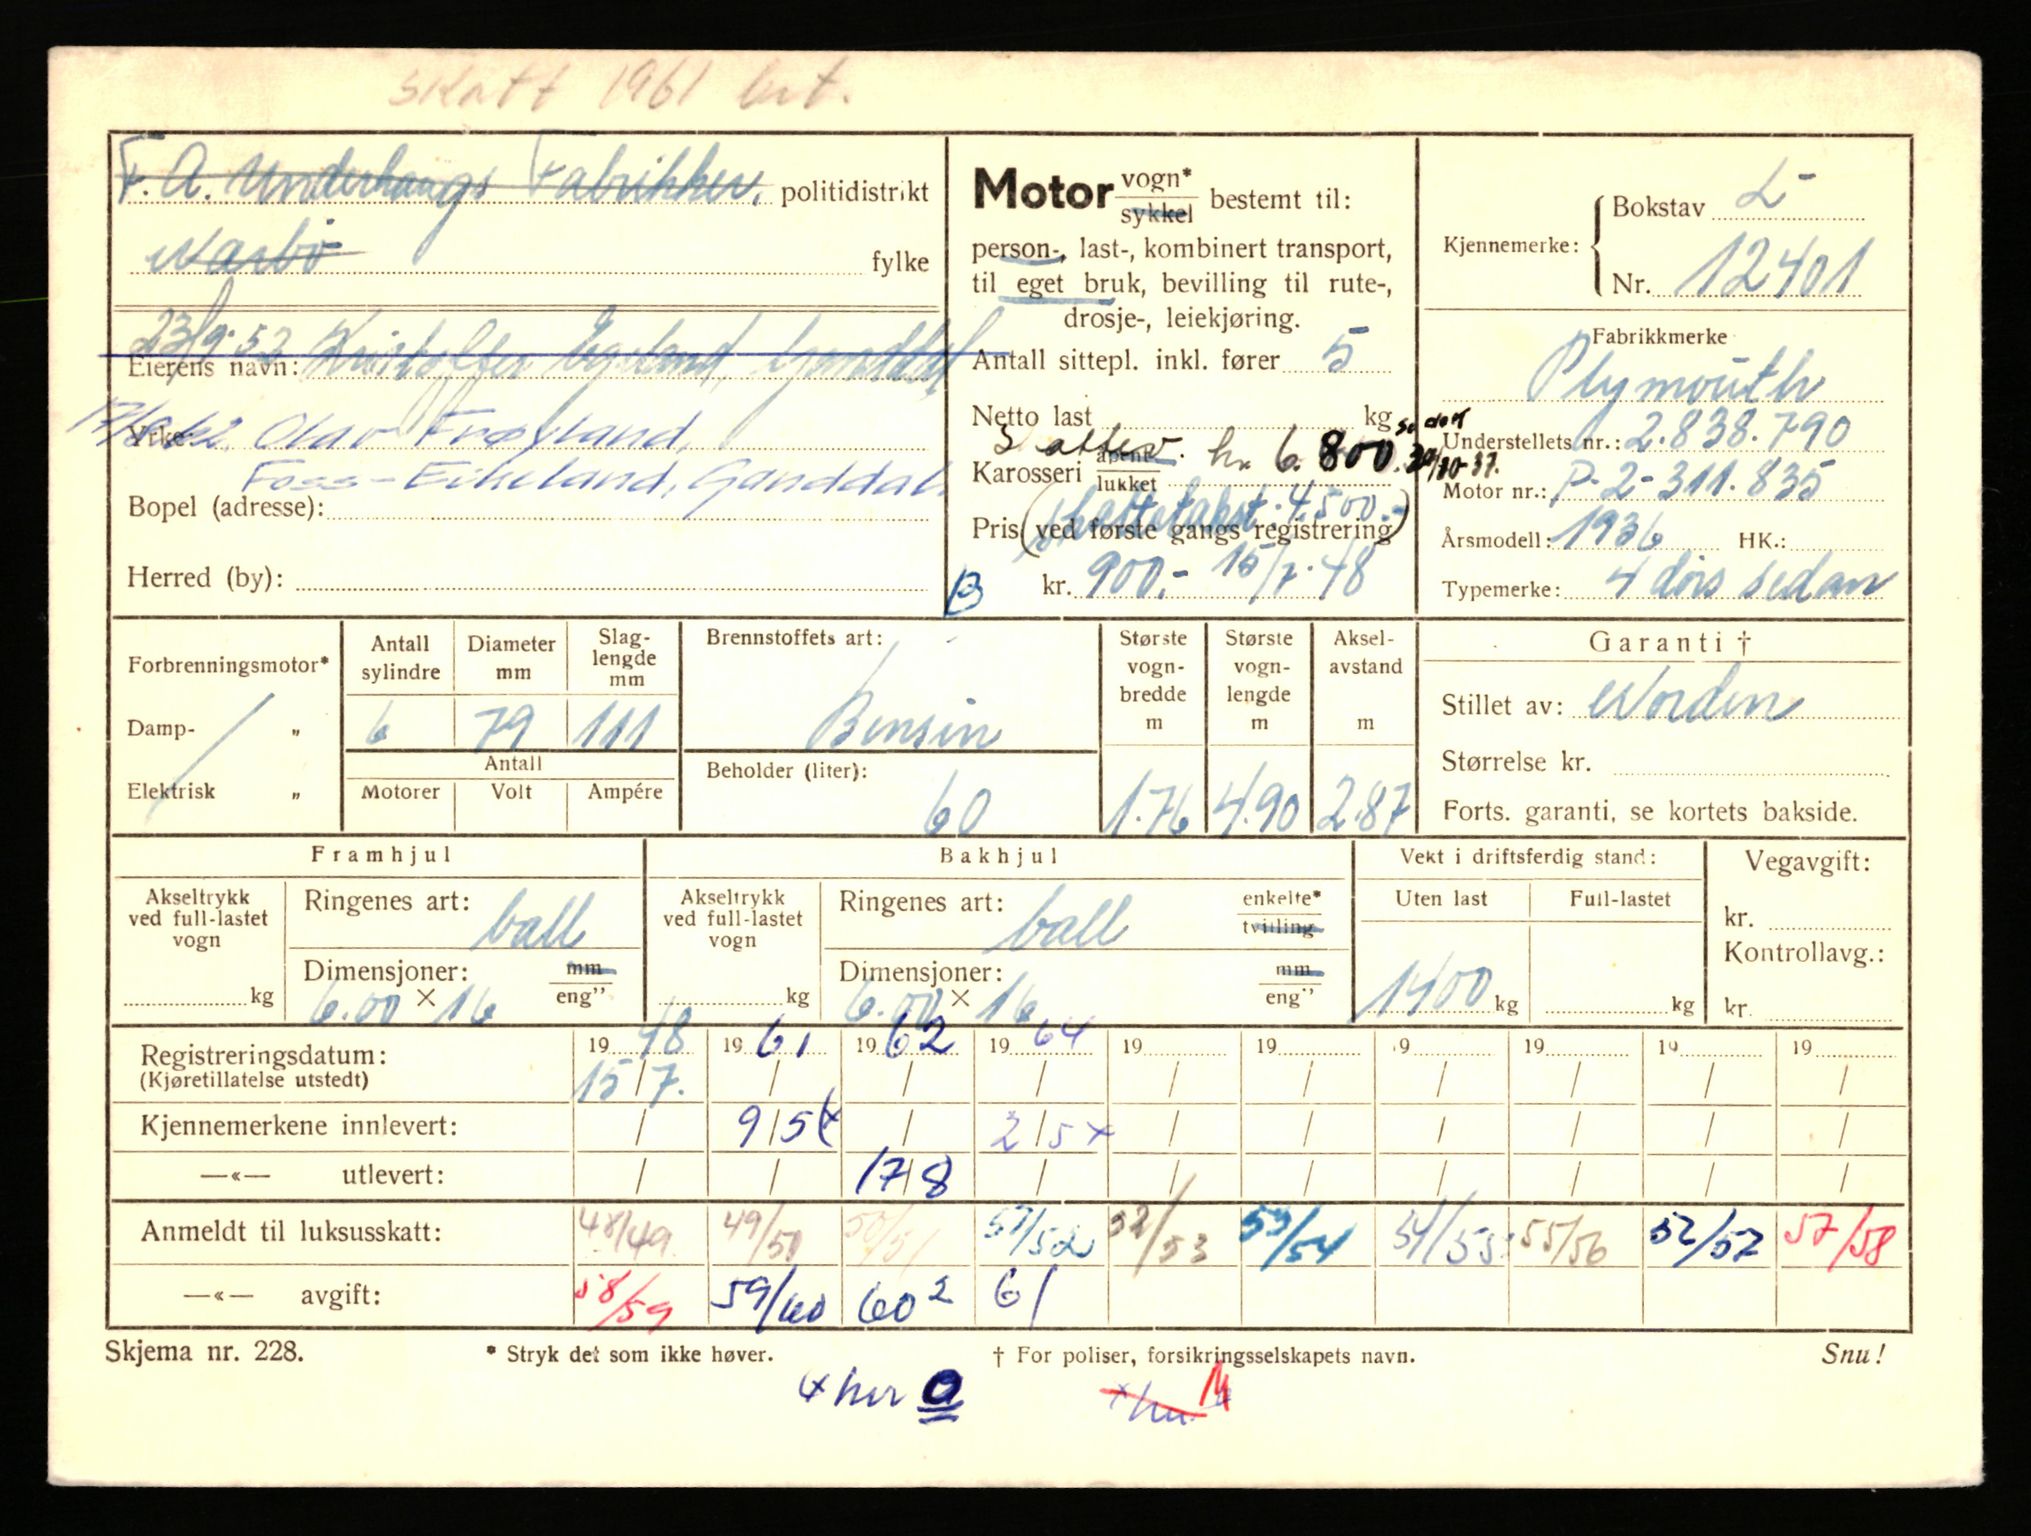 Skatt 1961 bet.
F. A. Underhaugs Fabrikker, politidistrikt
Nærbö fylke
23/9-52 Kristoffer Egeland, Ganddal
Eierens navn:
Yrke: Olav Frøyland,
Foss-Eikeland, Ganddal.
Bopel (adresse):
Herred (by):
Motor vogn* sykkel bestemt til:
person-, last-, kombinert transport,
til eget bruk, bevilling til rute-,
drosje-, leiekjøring.
Antall sittepl. inkl. fører 5
Netto last kg
kr. 6.800. 30/10-37.
Karosseri åpent lukket
skattetakst. 4.500.-
Pris (ved første gangs registrering)
B kr. 900.- 15/7-48
Kjennemerke: Bokstav L-
Nr. 12401
Fabrikkmerke
Plymouth
Understellets nr.: 2.838.790
Motor nr.: P-2-311.835
Årsmodell: 1936 HK.:
Typemerke: 4 dörs sedan
Forbrenningsmotor*
Damp- „
Elektrisk „
Antall sylindre 6
Diameter mm 79
Slaglengde mm 111
Antall
Motorer Volt Ampére
Brennstoffets art:
Bensin
Beholder (liter):
60
Største vogn-bredde m 1.76
Største vogn-lengde m 4.90
Aksel-avstand m 2.87
Garanti †
Stillet av: Norden
Størrelse kr.
Forts. garanti, se kortets bakside.
Framhjul
Akseltrykk ved full-lastet vogn kg
Ringenes art: ball
Dimensjoner: mm eng"
6.00 × 16
Bakhjul
Akseltrykk ved full-lastet vogn kg
Ringenes art: ball enkelte* tvilling
Dimensjoner: mm eng"
6.00 × 16
Vekt i driftsferdig stand:
Uten last Full-lastet
1400 kg kg
Vegavgift:
kr.
Kontrollavg.:
kr.
Registreringsdatum: 1948 1961 1962 1964 19 19 19 19 19 19
(Kjøretillatelse utstedt) 15/7. / / / / / / / / /
Kjennemerkene innlevert: / 9/5 x / 2/5 x / / / / / /
—«— utlevert: / / 17/8 / / / / / / /
Anmeldt til luksusskatt: 48/49 49/50 50/51 51/52 52/53 53/54 54/55 55/56 52/57 57/58
—«— avgift: 58/59 59/60 60² 61
Skjema nr. 228. * Stryk det som ikke høver. † For poliser, forsikringsselskapets navn. Snu!
x her a
x her